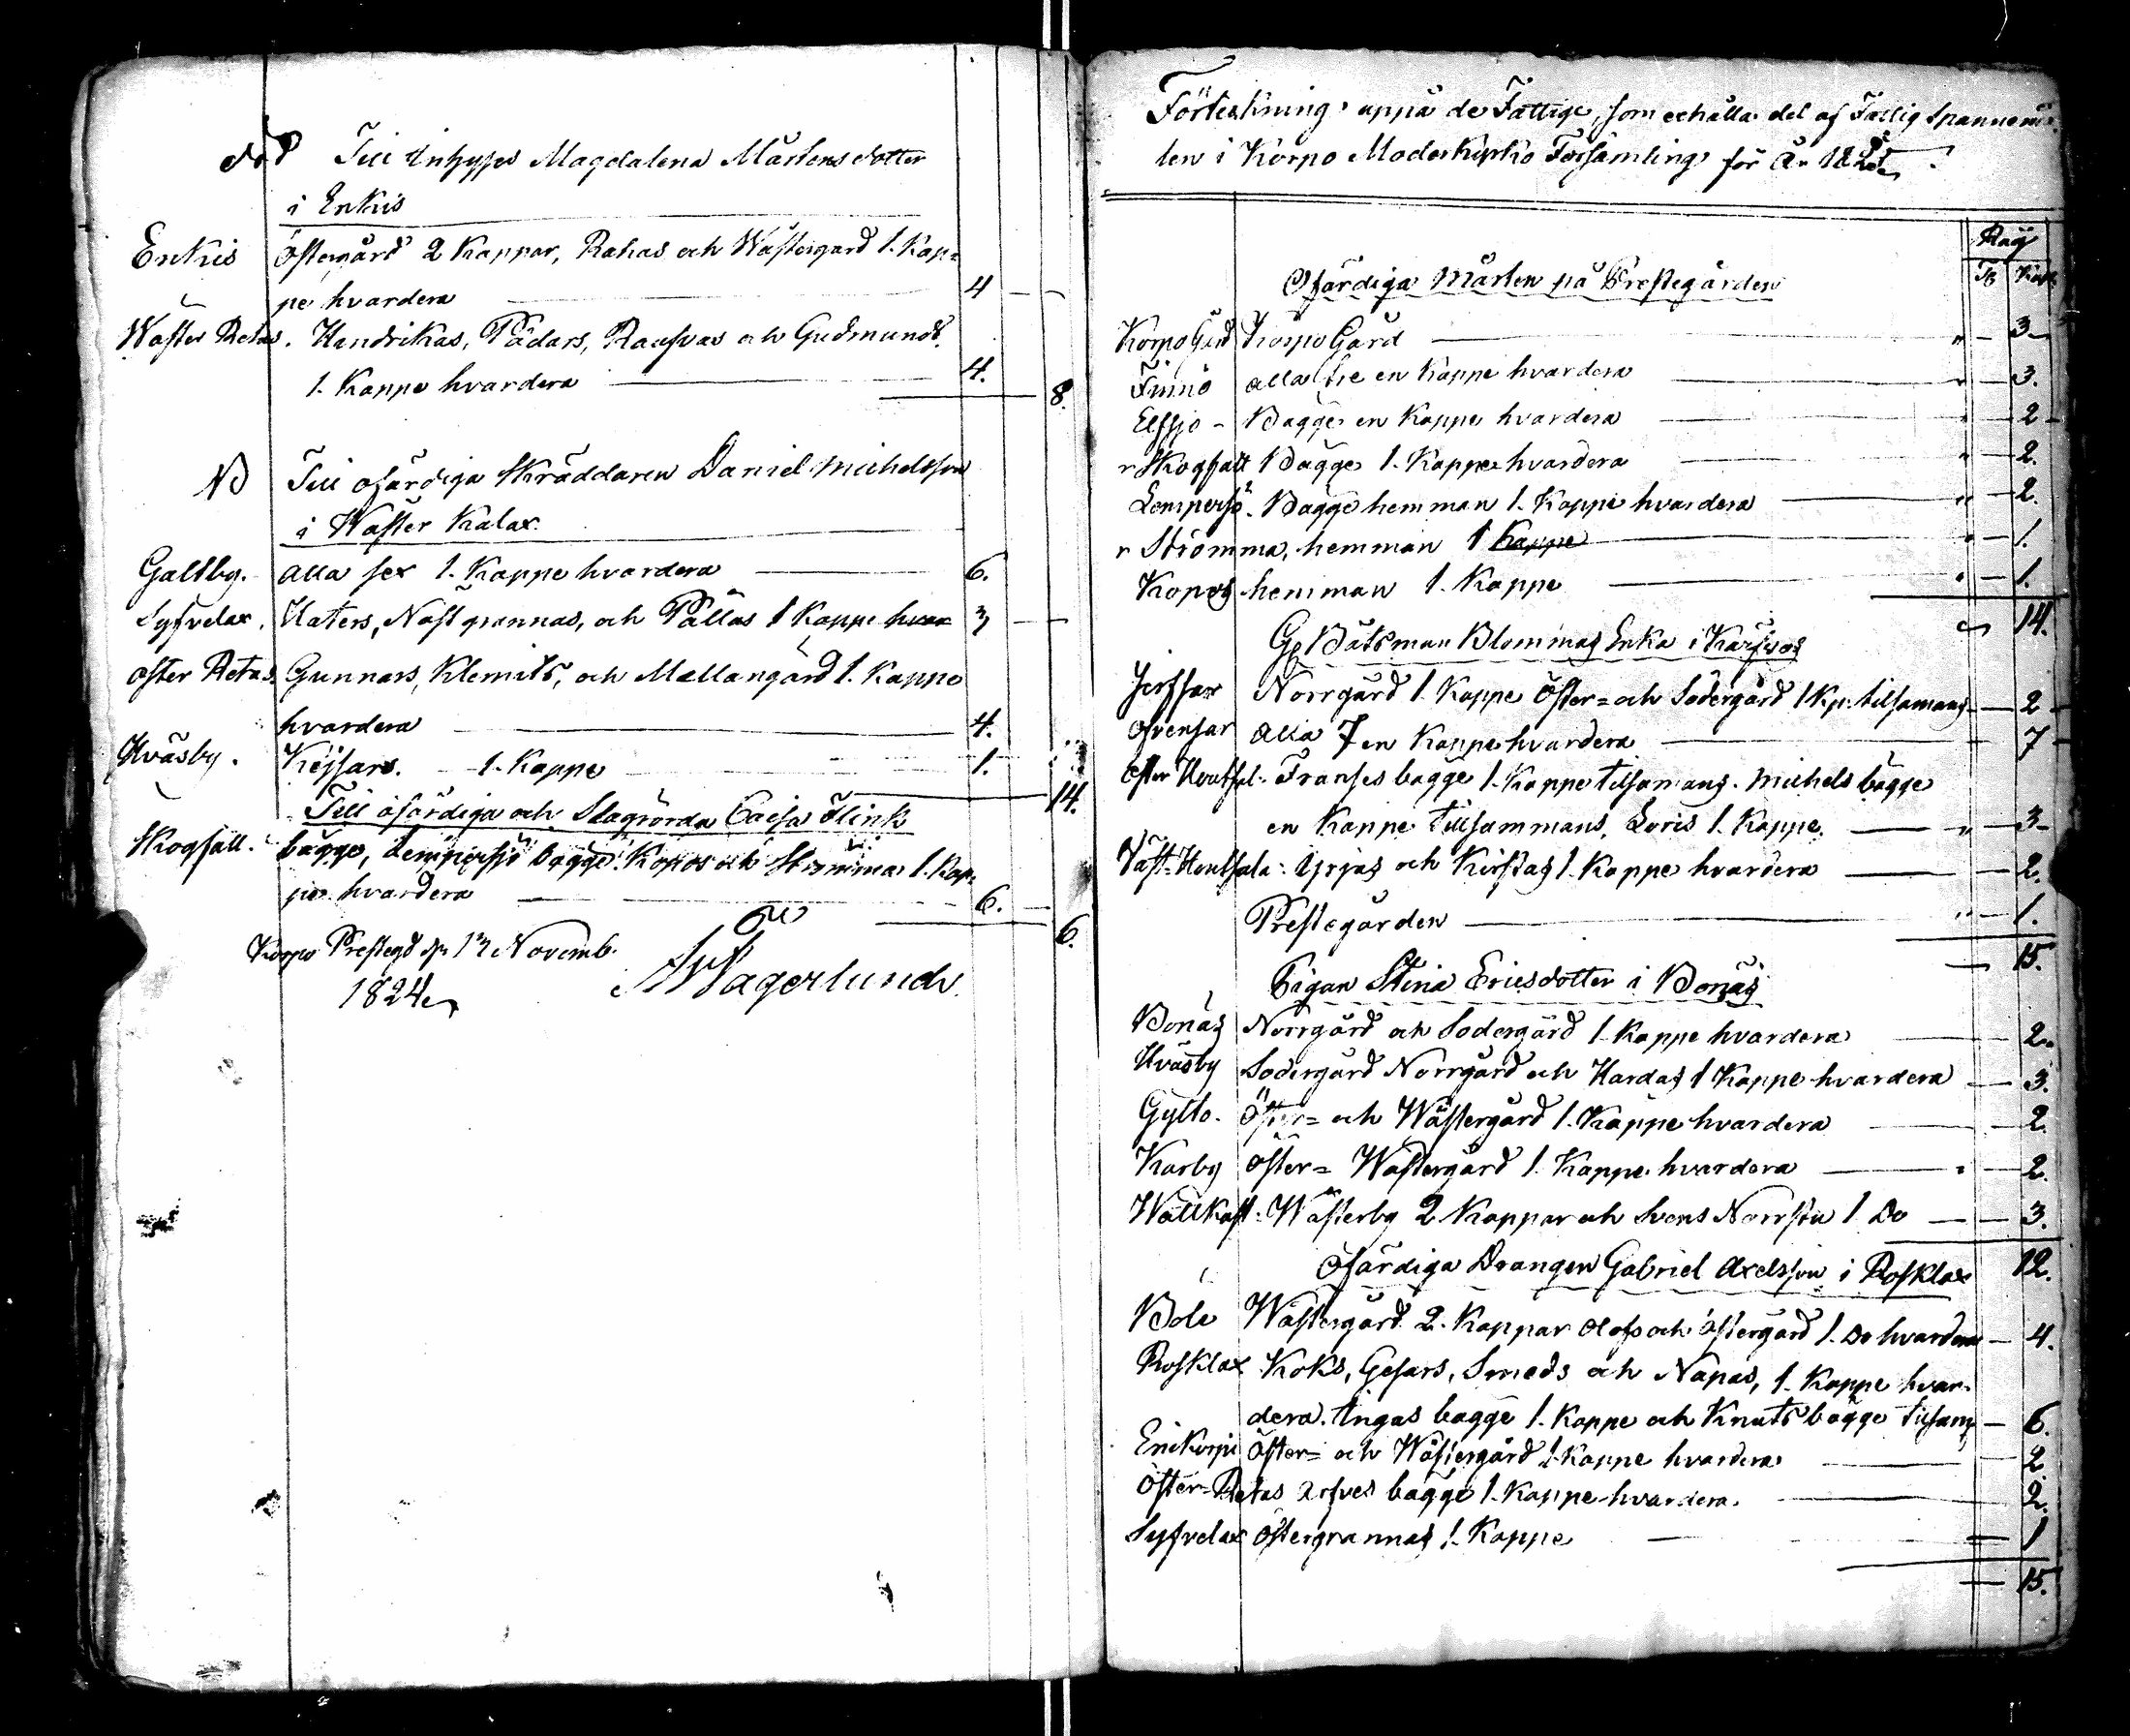 död Till Inhyses Magdalena Mårtensdotter
i Enkis
Enkis Östergård 2 Kappar, Rahas och Wästergård 1. Kap=
pe hvardera 4
Wäster Retas. Hindrikas, Pädars, Raufvas och Gudmunds
1. Kappe hvardera 4. 8.
Till ofärdiga Skräddaren Daniel Michelsson
i Wäster Kalax.
Galtby. alla sex 1. Kappe hvardera 6.
Syfvelax. Haters, Nästgrannas, och Pällas 1 Kappe hvar 3
öster Retas. Gunnars, Klemits, och Mellangård 1. Kappe
hvardera 4.
Hväsby. Kejsars. 1. Kappe 1. 14.
Till ofärdiga och Slagrörda Caisa Flink
Skogsall. bägge, Lempersjö bägge. Kopos och Strömma 1. Kap=
pe hvardera 6. 6.
Korpo Prestegd d. 13 Novemb.
1824
Fagerlund
Förtekning uppå de Fattige, som erhålla del af Fattig Spannemå
len i Korpo Moderkyrko Församling för År
Råg
Tr Kapp
Ofärdiga Mårten på Prestegården
Korpo Gård Korpo Gård " 3
Finnö alla tre en Kappe hvardera " 3.
Elfsjö Bägge en Kappe hvardera " 2
Skogsall Bägge 1. Kappe hvardera " 2.
Lempersjö. Bägge hemman 1. Kappe hvardera " 2.
Strömma, hemman 1 Kappe " 1.
Kopos hemman 1. Kappe " 1.
14.
Båtsman Blommas Enka i Kärfvas
Jerssar Norrgård 1. Kappe Öster= och Södergård 1 Kp. tilsamans 2
Ofvensar alla 7 en Kappe hvardera 7
Öster Houtsal. Franses bägge 1. Kappe tilsamans. Michels bägge
en Kappe tillsammans, Loris 1. Kappe. " 3
Väst. Houtsala: Yrjas och Kirstas 1. Kappe hvardera 2.
Prestegården " 1.
15.
Pigan Stina Ericsdotter i Bonäs
Bonäs Norrgård och Södergård 1. Kappe hvardera 2.
Hväsby Södergård Norrgård och Hardas 1 Kappe hvardera 3.
Gyllo. Öster= och Wästergård 1. Kappe hvardera 2.
Karby Öster= Wästergård 1. Kappe hvardera 2.
Wattkast. Wästerby 2 Kappar och Svens Norrstu 1 Do 3.
12.
Ofärdiga Drängen Gabriel Axelsson i Rosklax
Bole Wästergård 2. Kappar Olofs och Östergård 1. Do hvardera 4.
Rosklax Koks, Gesars, Smeds och Napas, 1. Kappe hvar=
dera. Ingas bägge 1. Kappe och Knuts bägge tilsam 6.
Enikorpe Öster= och Wästergård 1. Kappe hvardera 2.
Öster=Retas Arfves bägge 1. Kappe hvardera. 2.
Syfvelax Östergrannas 1. Kappe 1
15.